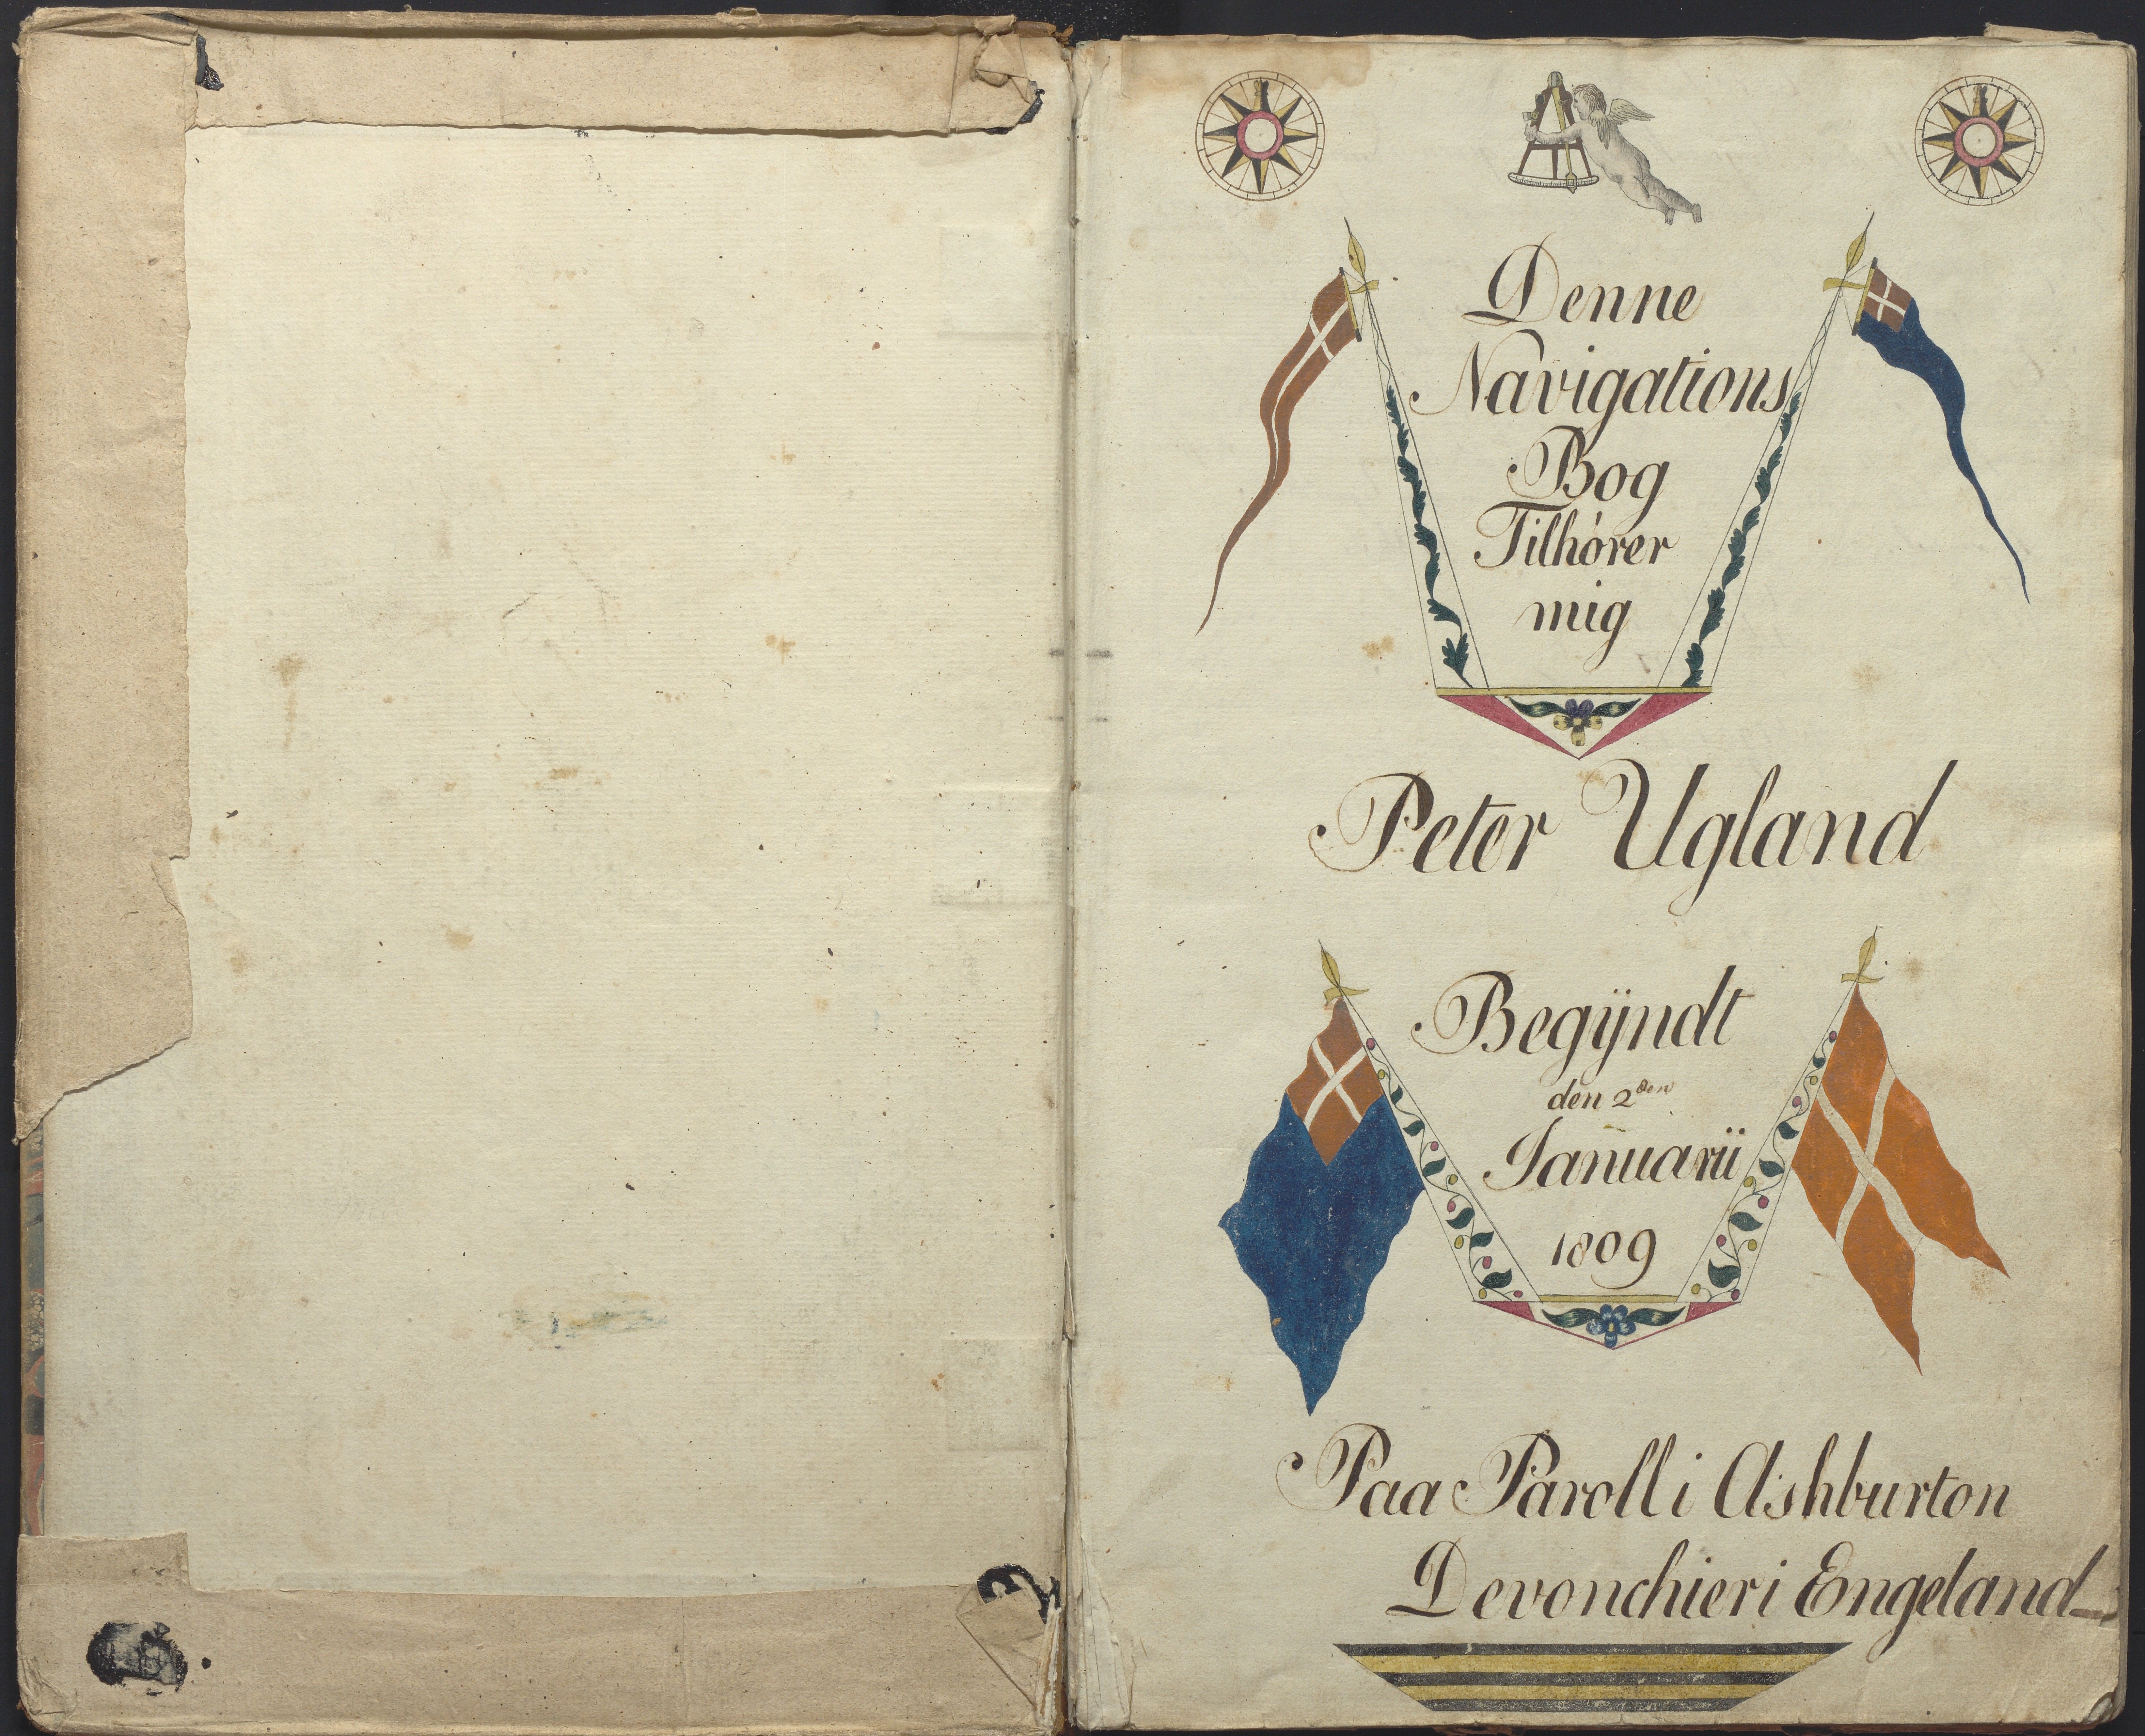 Denne
Navigations
Bog
Tilhórer
mig
Peter Ugland
Begÿndt
den 2den
Januarii
1809
Paa Paroll i Ashburton
Devonchier i Engeland